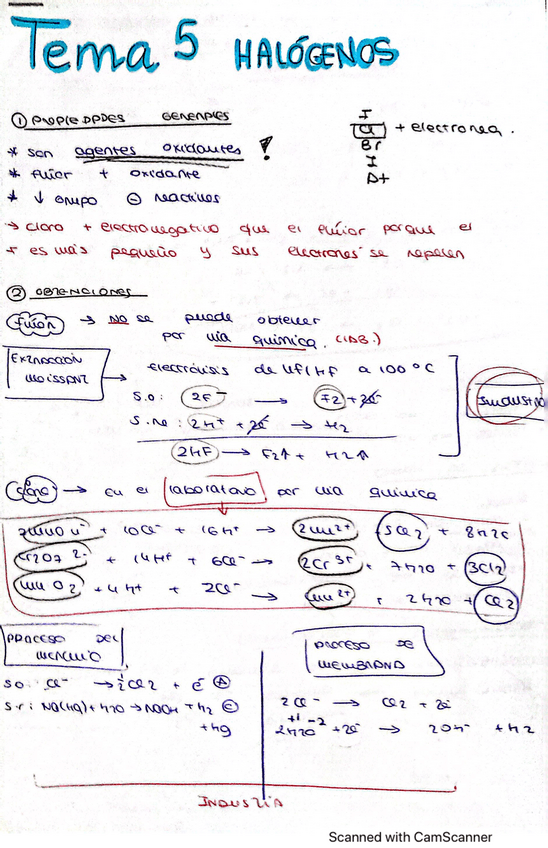 Tema 5 HALÓGENOS
① PROPIEDADES GENERALES
* son agentes oxidantes !
* flúor + oxidante
* ↓ Grupo ⊖ reactivos
Cl + electroneg.
Br
I
At
→ cloro + electronegativo que el flúor porque el
F es más pequeño y sus electrones se repelen
② OBTENCIONES
flúor → NO se puede obtener
por vía química. (LAB.)
EXTRACCIÓN
MOISSANT → electrólisis de KF/HF a 100°C
S.O: 2F⁻ → F2 + 2e⁻
S.RE: 2H⁺ + 2e⁻ → H2
2HF → F2↑ + H2↑
Industria
cloro → en el laboratorio por vía química
2MnO4⁻ + 10Cl⁻ + 16H⁺ → 2Mn²⁺ + 5Cl2 + 8H2O
Cr2O7 2- + 14H⁺ + 6Cl⁻ → 2Cr3+ + 7H2O + 3Cl2
MnO2 + 4H⁺ + 2Cl⁻ → Mn2+ + 2H2O + Cl2
PROCESO DEL
MERCURIO
S.O: Cl⁻ → ½Cl2 + e⁻ Ⓐ
S.r: Na(Hg) + H2O → NaOH + H2 Ⓒ
+ Hg
PROCESO DE
MEMBRANA
2Cl⁻ → Cl2 + 2e⁻
+1 -2
2H2O + 2e⁻ → 2OH⁻ + H2
INDUSTRIA
Scanned with CamScanner